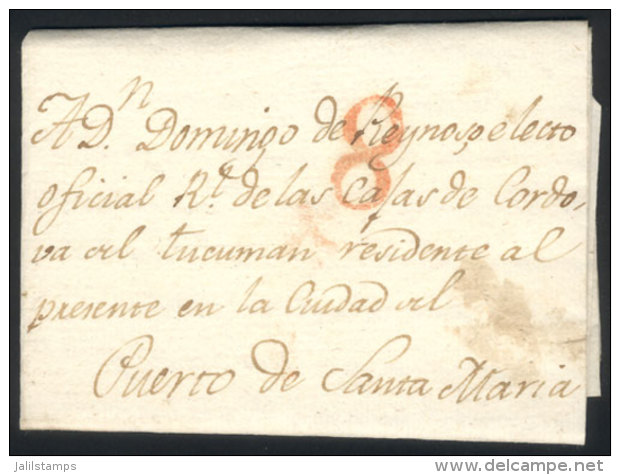 A Dn. Domingo de Reynoso electo
oficial Rl. de las Cajas de Cordo-
va del tucuman residente al
presente en la Ciudad del
Puerto de Santa Maria
8
jalilstamps
www.delcampe.net